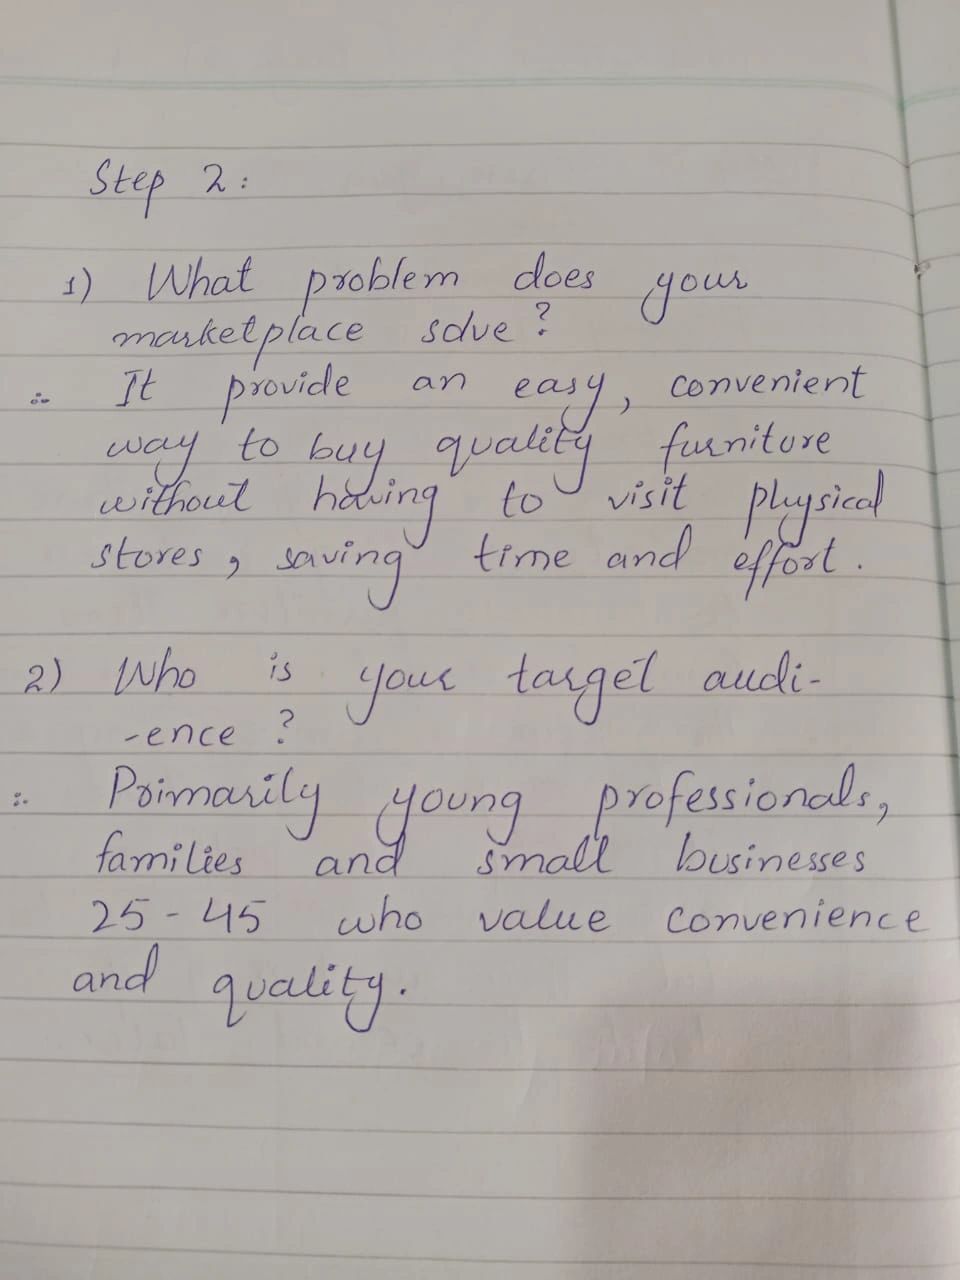 Step 2:
1) What problem does your
marketplace solve?
∴ It provide an easy, convenient
way to buy quality furniture
without having to visit physical
stores, saving time and effort.
2) Who is your target audi-
-ence?
∴ Primarily young professionals,
families and small businesses
25-45 who value convenience
and quality.